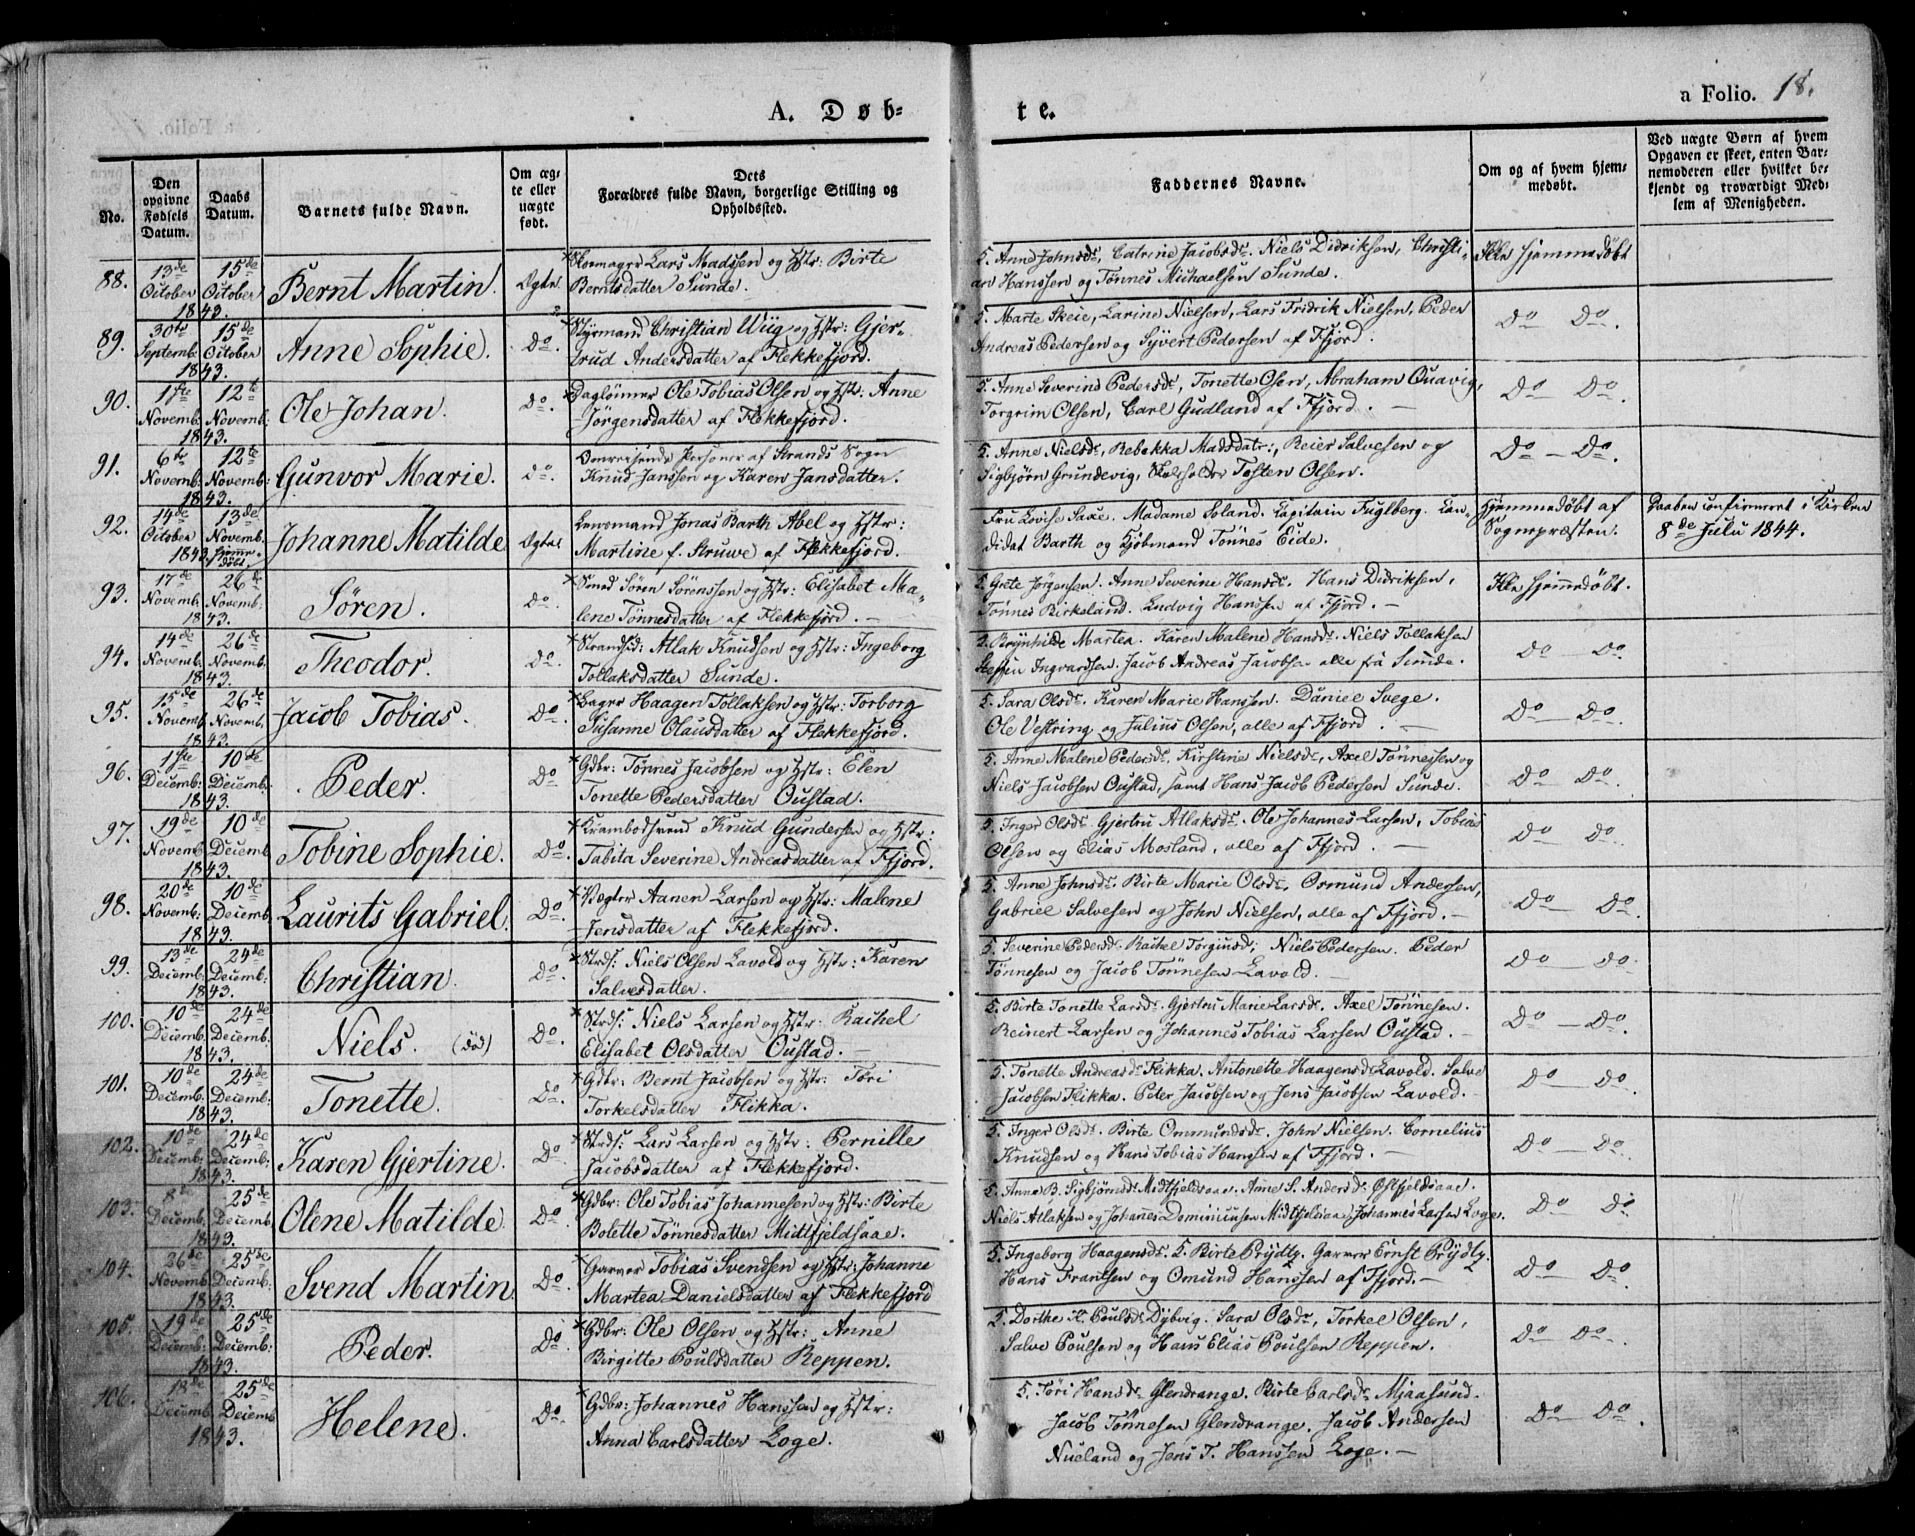 A. Døb= te.
a Folio. 18.
No.
Den opgivne Fødsels Datum.
Daabs Datum.
Barnets fulde Navn.
Om æg- te eller uægte født.
Dets Forældres fulde Navn, borgerlige Stilling og Opholdssted.
Faddernes Navne.
Om og af hvem hjem- medøbt.
Ved uægte Børn af hvem Opgaven er skeet, enten Bar- nemoderen eller hvilket be- kjendt og troværdigt Med- lem af Menigheden.
88. 13de October 1843. 15de October
Bernt Martin. Ægte
Skomager Lars Madssen og Hstr: Birte
Berntsdatter Sunde.
5. Anne Johnsdr, Catrine Jacobsdr. Niels Didriksen, Christi-
an Hanssen og Tønnes Michaelsen Sunde.
Ikke hjemmedøbt
89. 30te Septemb. 1843. 15de October
Anne Sophie. Do.
Styrmand Christian Wiig og Hstr: Gjer-
trud Andersdatter af Flekkefjord.
5. Marte Skeie, Larine Nielsen, Lars Fridrik Nielsen, Peder
Andreas Pedersen og Syvert Pedersen af Ffjord.
Do Do.
90. 1ste Novemb: 1843. 12te Novemb:
Ole Johan. Do.
Daglönner Ole Tobias Olsen og Hstr: Anne
Jörgensdatter af Flekkefjord.
5. Anne Severine Pedersdr, Tonette Osen, Abraham Quavig,
Torgrim Olsen, Carl Gudland af Ffjord. —
Do Do.
91. 6te Novemb: 1843. 12te Novemb:
Gunvor Marie. do.
Omreisende Personer af Strands Sogn
Knud Janssen og Karen Jansdatter.
5. Anne Nielsdr, Rebekka Madsdatr:, Reier Salvesen og
Sigbjørn Grundevig, Tosten Olsen.
Do — Do.
92. 14de October 1843. 13de Novemb. hjemme- døbt.
Johanne Matilde Ægte
Lensmand Jonas Barth Abel og Hstr:
Martine f. Struwe af Flekkefjord.
Fru Lovise Saxe. Madame Soland. Capitain Fuglberg. Can-
didat Barth og Kjöbmand Tönnes Eide.
Hjemmedøbt af
Sognepræsten.
Daaben confirmeret i Kirken
8de Julii 1844.
93. 17de Novemb. 1843. 26de Novemb:
Sören. Do.
Smed Sören Sörenssen og Hstr: Elisabet Ma-
lene Tönnesdatter af Flekkefjord. —
5. Grete Jörgensen. Anne Severine Hansdr. Hans Didriksen,
Tönnes Birkeland. Ludvig Hanssen af Ffjord. —
Ikke hjemmedøbt.
94. 14de Novemb. 1843. 26de Novemb.
Theodor. Do.
Strandsid: Atlak Knudsen og Hstr: Ingeborg
Tollaksdatter Sunde.
5. Brynhilde Martea. Karen Malene Hansdr. Niels Tollaksen
Steffen Ingvardsen. Jacob Andreas Jacobsen alle fra Sunde.
Do Do.
95. 15de Novemb 1843. 26de Novemb.
Jacob Tobias. Do.
Bager Haagen Tollaksen og Hstr: Torborg
Susanne Olausdatter af Flekkefjord.
5. Sara Olsdr. Karen Marie Hanssen. Daniel Svege.
Ole Vestring og Julius Olsen, alle af Ffjord. —
Do — Do.
96. 1ste Decemb: 1843. 10de Decemb.
Peder. Do
Gdbr: Tönnes Jacobsen og Hstr: Elen
Tonette Pedersdatter Oustad.
5. Anne Malene Pedersdr, Kirstine Nielsdr, Axel Tönnesen og
Niels Jacobsen Oustad, samt Hans Jacob Pedersen Sunde.
Do Do.
97. 19de Novemb 1843. 10de Decemb
Tobine Sophie. Do.
Krambodsvend Knud Gundersen og Hstr:
Tabita Severine Andreasdatter af Ffjord.
5. Inger Olsdr. Gjertru Atlaksdr. Ole Johannes Larsen, Tobias
Olsen og Elias Mosland, alle af Ffjord. —
Do Do.
98. 20de Novemb: 1843. 10de Decemb.
Laurits Gabriel. Do.
Vægter Aanen Larsen og Hstr: Malene
Jensdatter af Flekkefjord.
5. Anne Johnsdr. Birte Marie Olsdr, Osmund Andersen,
Gabriel Salvesen og John Nielsen, alle af Ffjord. —
Do — Do.
99. 13de Decemb: 1843. 24de Decemb:
Christian. Do.
Strds: Niels Olsen Lavold og Hstr: Karen
Salvesdatter.
5. Severine Pedersdr. Rachel Torginsd; Niels Pedersen. Peder
Tönnesen og Jacob Tönnesen Lavold. —
Do — Do.
100. 10de Decemb: 1843. 24de Decemb.
Niels. (död) Do
Strds: Niels Larsen og Hstr: Rachel
Elisabet Olsdatter Oustad. —
5. Birte Tonette Larsdr. Gjertru Marie Larsdr. Axel Tönnesen.
Reinert Larsen og Johannes Tobias Larsen Oustad. —
Do — Do.
101. 10de Decemb: 1843. 24de Decemb:
Tonette. Do.
Gdbr: Bernt Jacobsen og Hstr: Tori
Torkelsdatter Flikka.
5. Tonette Andreasdr Flikka. Antonette Haagensdr Lavold. Salve
Jacobsen Flikka. Peter Jacobsen og Jens Jacobsen Lavold. —
Do Do.
102. 10de Decemb: 1843. 24de Decemb:
Karen Gjertine. Do.
Strds: Lars Larsen og Hstr: Pernille
Jacobsdatter af Flekkefjord.
5. Inger Olsdr. Birte Ommundsdr. John Nielsen. Cornelius
Knudsen og Hans Tobias Hanssen af Ffjord. —
Do Do.
103. 8de Decemb. 1843. 25de Decemb.
Olene Matilde. Do.
Gdbr: Ole Tobias Johannesen og Hstr: Birte
Bolette Tönnesdatter Midtfjeldsaae.
5. Anna B. Sigbjörnsdr Midtfjeldsaae. Anne S. Andersdr Østfjeldsaae.
Niels Atlaksen og Johanes Dominicusen Midtfjeldsaae, Johannes Larsen Loge.
Do Do.
104. 26de Novemb 1843. 25de Decemb.
Svend Martin Do.
Garver Tobias Svendsen og Hstr: Johanne
Martea Danielsdatter af Flekkefjord
5. Ingeborg Haagensdr. Birte Prydtz. Garver Ernst Prydtz.
Hans Frantsen og Omund Hanssen af Ffjord. —
Do Do.
105. 19de Decemb: 1843. 25de Decemb:
Peder. Do
Gdbr: Ole Olsen og Hstr: Anne
Birgitte Poulsdatter Reppen.
5. Dorthe K. Poulsdr Dybvig. Sara Olsdr, Torkel Olsen,
Salve Poulsen og Hans Elias Poulsen Reppen.
Do Do.
106. 18de Decemb 1843. 25de Decemb
Helene. Do.
Gdbr: Johannes Hanssen og Hstr:
Anna Carlsdatter Loge.
5. Töri Hansdr Glendrange. Birte Carlsdr Mjaasund.
Jacob Tönnesen Glendrange. Jacob Andersen
Nueland og Jens T. Hanssen Loge. —
Do — Do.